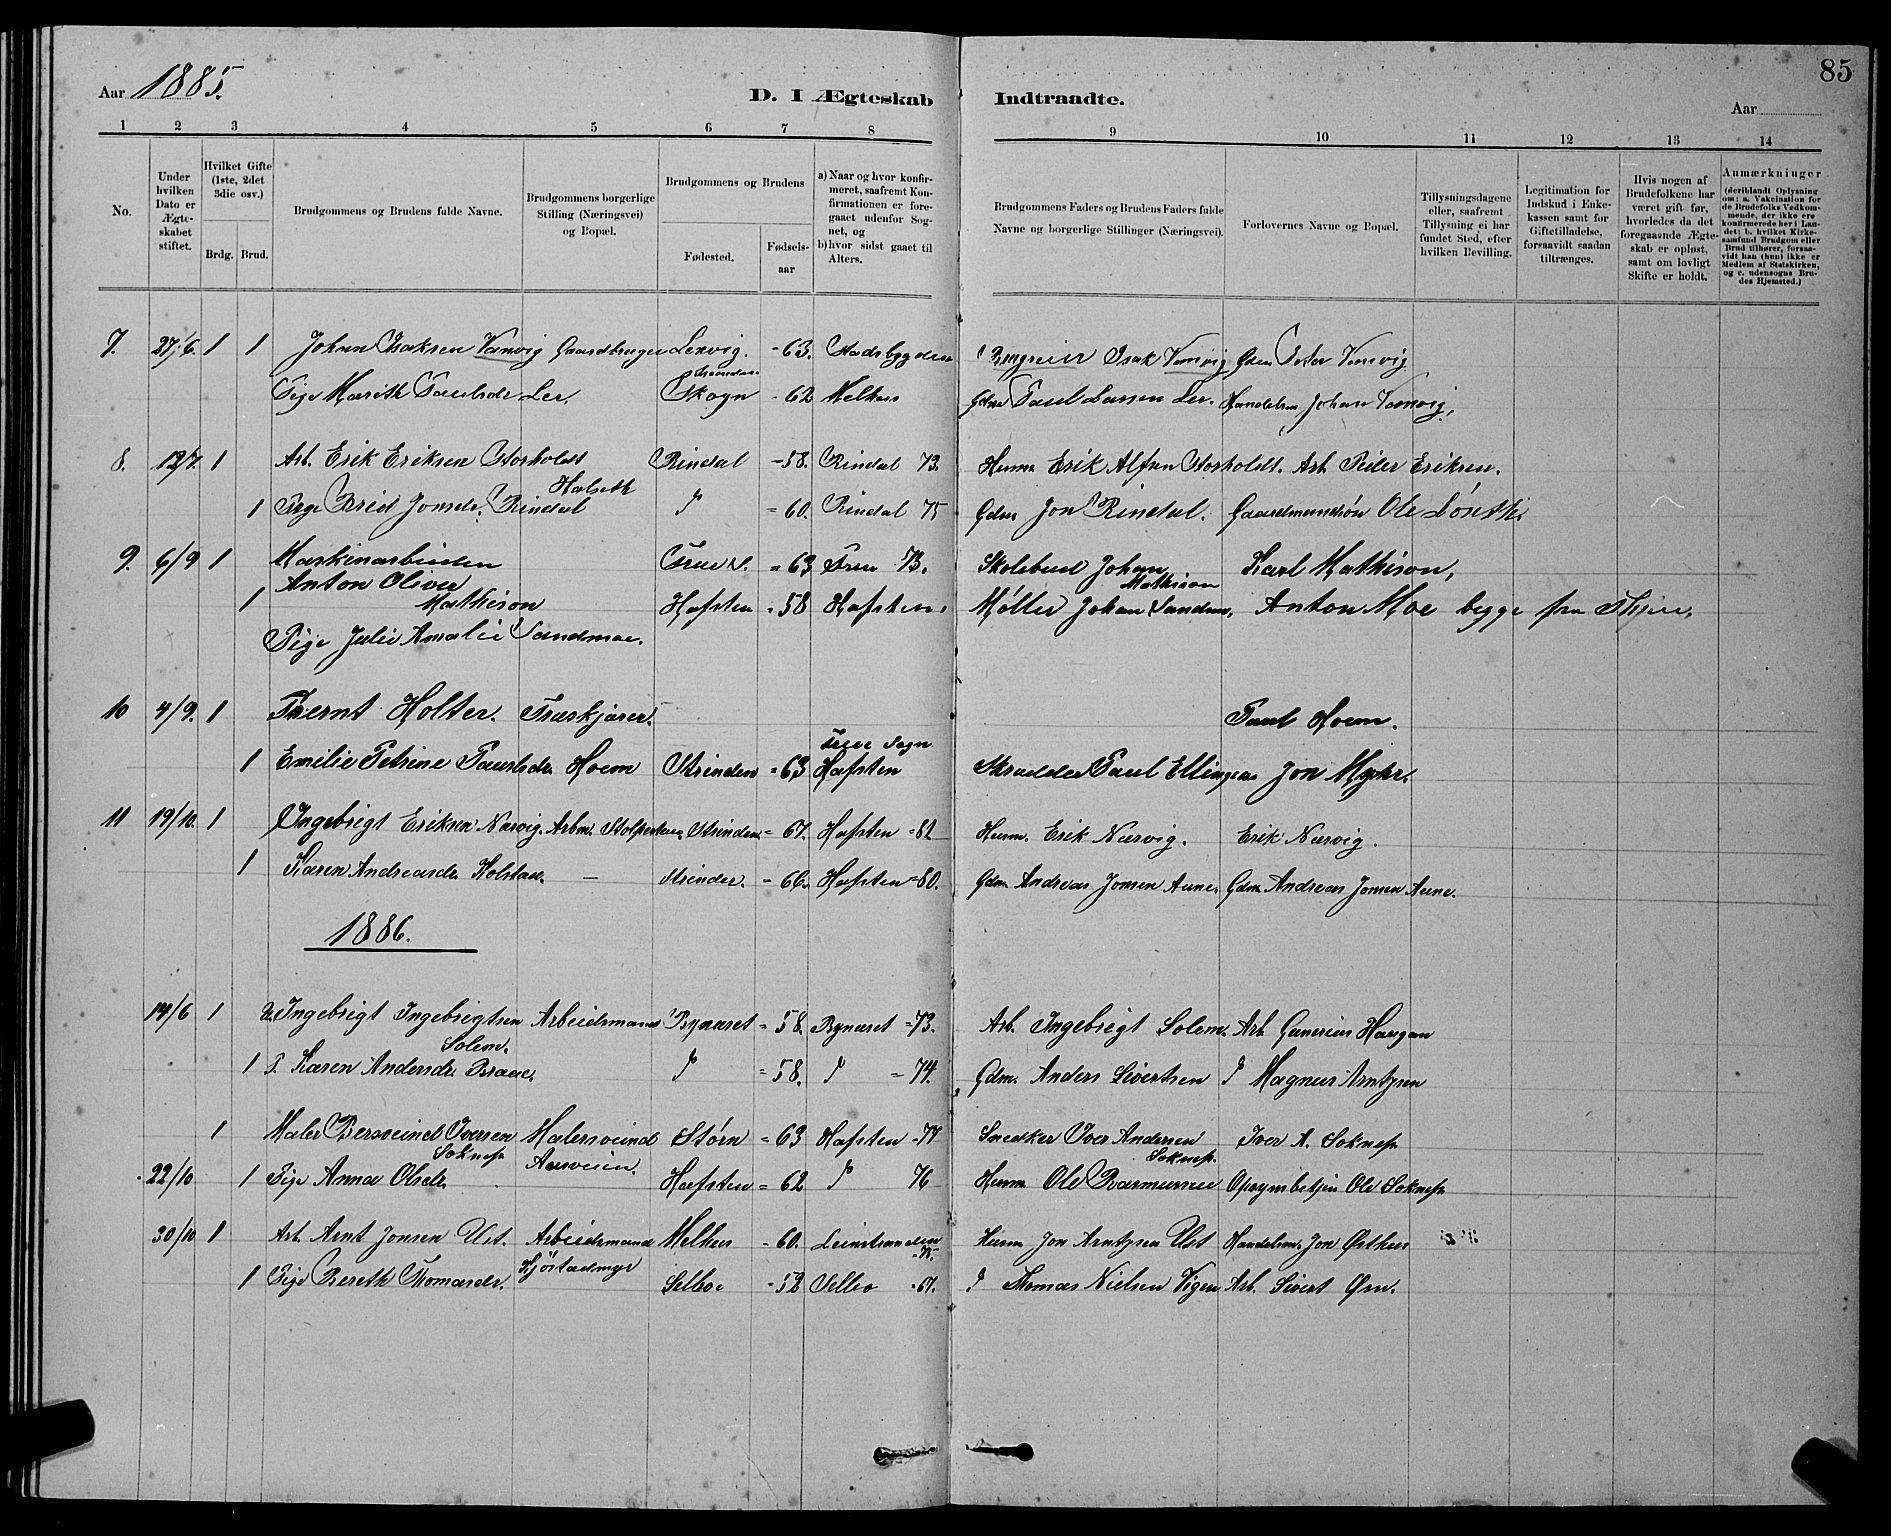 85
Aar 1885. D. I Ægteskab Indtraadte. Aar
1 2 3 4 5 6 7 8 9 10 11 12 13 14
No.
Under hvilken Dato er Ægteskabet stiftet.
Hvilket Gifte (1ste, 2det 3die osv.)
Brdg. Brud.
Brudgommens og Brudens fulde Navne.
Brudgommens borgerlige Stilling (Næringsvei) og Bopæl.
Brudgommens og Brudens
Fødested.
Fødselsaar
a) Naar og hvor konfirmeret, saafremt Konfirmationen er foregaaet udenfor Sognet, og
b) hvor sidst gaaet til Alters.
Brudgommens Faders og Brudens Faders fulde Navne og borgerlige Stillinger (Næringsvei).
Forlovernes Navne og Bopæl.
Tillysningsdagene eller, saafremt Tillysning ei har fundet Sted, efter hvilken Bevilling.
Legitimation for Indskud i Enkekassen samt for Giftetilladelse, forsaavidt saadan tiltrænges.
Hvis nogen af Brudefolkene har været gift før, hvorledes da det foregaaende Ægteskab er opløst, samt om lovligt Skifte er holdt.
Anmærkninger
(deriblandt Oplysning om: a. Vakcination for de Brudefolks Vedkommende, der ikke ere konfirmerede her i Landet; b. hvilket Kirkesamfund Brudgom eller Brud tilhører, forsaavidt han (hun) ikke er Medlem af Statskirken, og c. udensogns Brudes Hjemsted.)
7. 27/6. 1 1 Johan Isaksen Vanvig Gaardbruger Lexvig. - 63. Stadsbygden Isak Vanvig Gdm Peter Vanvig
Pige Marith Paulsdr Ler. Skogn - 62 Melhus Gdm Paul Larsen Ler. Handelsm Johan Vanvig.
8. 12/7. 1 Arb. Erik Eriksen Storholdt Rindal - 58. Rindal 73. Husm Erik Alfsen Storholdt. Arb Peder Eriksen.
1 Pige Brid Jonsdr. Rindal Halseth - 60. Rindal 75 Gdm Jon Rindal. Gaardmandsøn Ole Løseth.
9. 6/9 1 Maskinarbeider = 63 73. Skolebud Johan Mathison Karl Mathison,
Anton Oliver
1 Mathison Hafsten = 58 Hafsten. Møller Johan Sandmo, Anton Moe begge fra
Pige Julie Amalie Sandmoe.
10 4/9. 1 Bernt Holter. Træskjærer. Paul Hoem.
1 Emilie Petrine Paulsdr. Hoem Strinden = 63 Hafsten Skrædder Paul Ellingsen Jon Myhr.
11 19/10. 1 Ingebrigt Eriksen Narvig. Arbm. Strinden = 67. Hafsten = 82 Husm. Erik Narvig. Erik Narvig.
1 Karen Andreasdr. Kolstad. — Strinden. - 66. Hafsten = 80. Gdm. Andreas Jonsen Aune. Gdm. Andreas Jonsen Aune.
1886.
14/6 1 Ingebrigt Ingebrigtsen Arbeidsmand Bynæset = 58. Bynæset = 73. Arb. Ingebrigt Solem. Arb Haugan
Solem.
1 P. Karen Andersdr. Braae. = 58. = 74. Gdm. Anders Sivertsen Magnus Arntzen
1 Maler Bersveind Iversen Malersveind Støren = 63 Hafsten - 77 Snedker Iver Andersen Iver A. Soknes
Soknes Aasveien. Soknes.
22/10 1 Pige Anna Olsdr. Hafsten = 62 76 Husm Ole Rasmussen Opsynsbetjen Ole Soknes
30/10 1 Arb. Arnt Jonsen Ust. Arbeidsmand Melhus - 60. Leinstranden Husm Jon Arntzen Ust Handelsm. Jon Østhus
- 75.
1 Pige Bereth Thomasdr. Selboe = 52 Selbo - 67. Thomas Nielsen Vigen Arb. Sivert Øm.